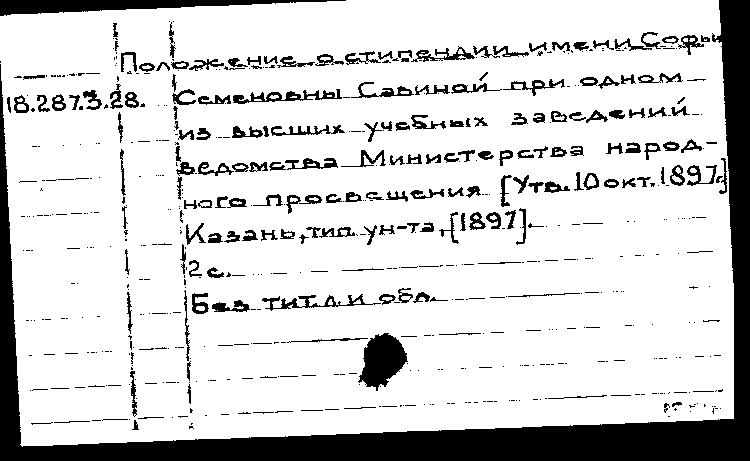 Положение о стипендии имени Софьи
18.287.3.28. Семеновны Савиной при одном
из высших учебных заведений
ведомства Министерства народ-
ного просвещения [Утв. 10 окт. 1897г.]
Казань, тип. ун-та, [1897].
2 с.
Без тит. л. и обл.